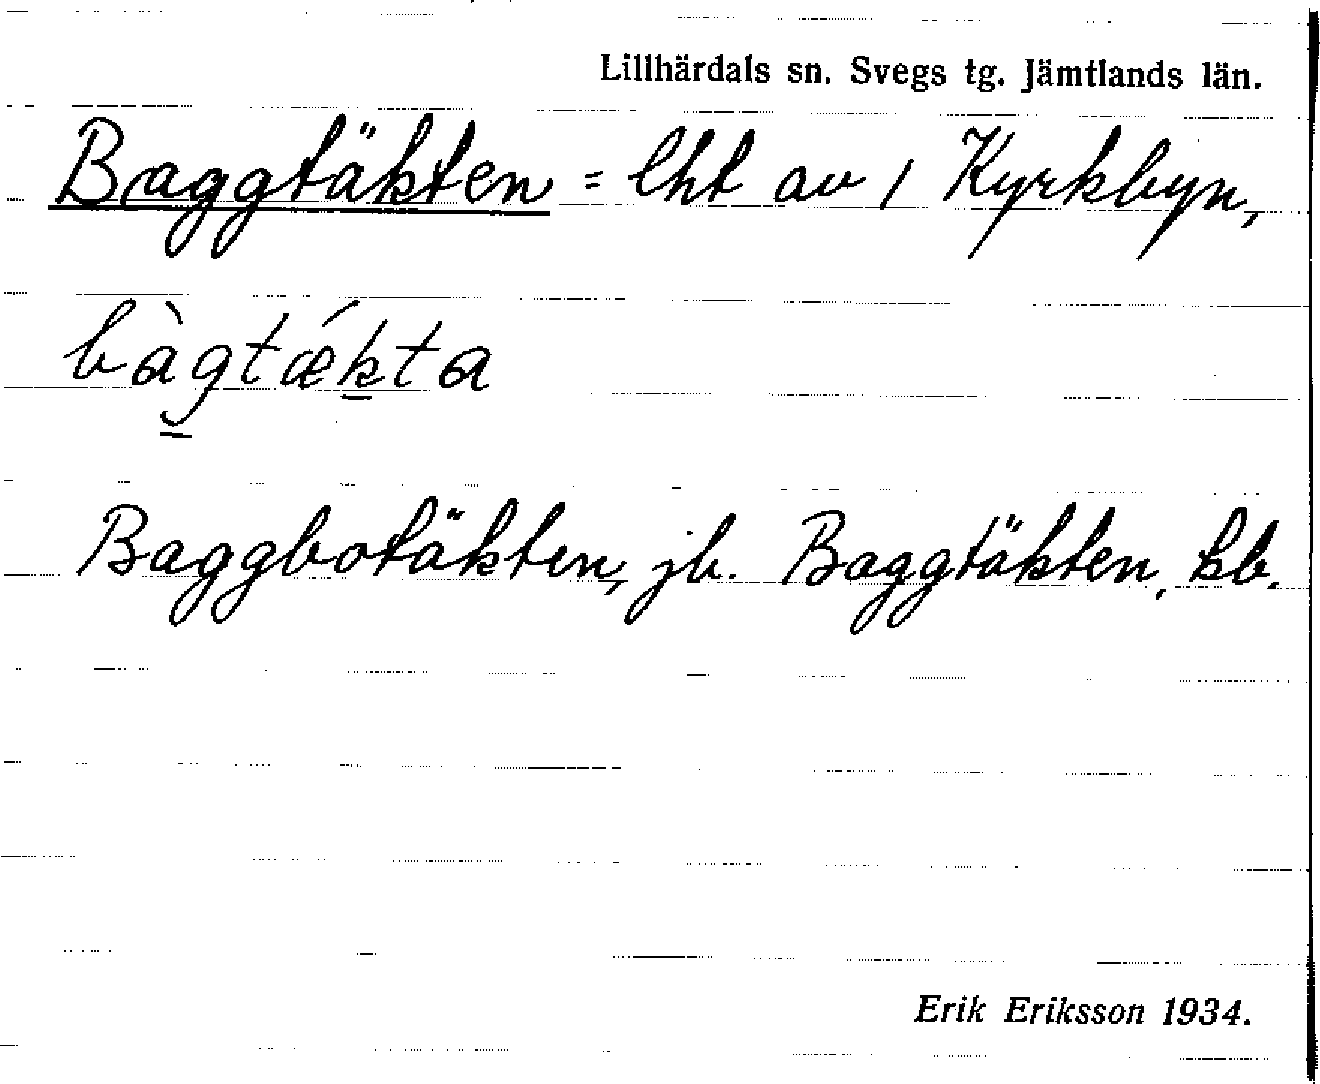 Lillhärdals sn. Svegs tg. Jämtlands län.
Baggtäkten = lht av 1 Kyrkbyn,
bàg̲tǽk̲ta
Baggbotäkten, jb. Baggtäkten, kb.
Erik Eriksson 1934.